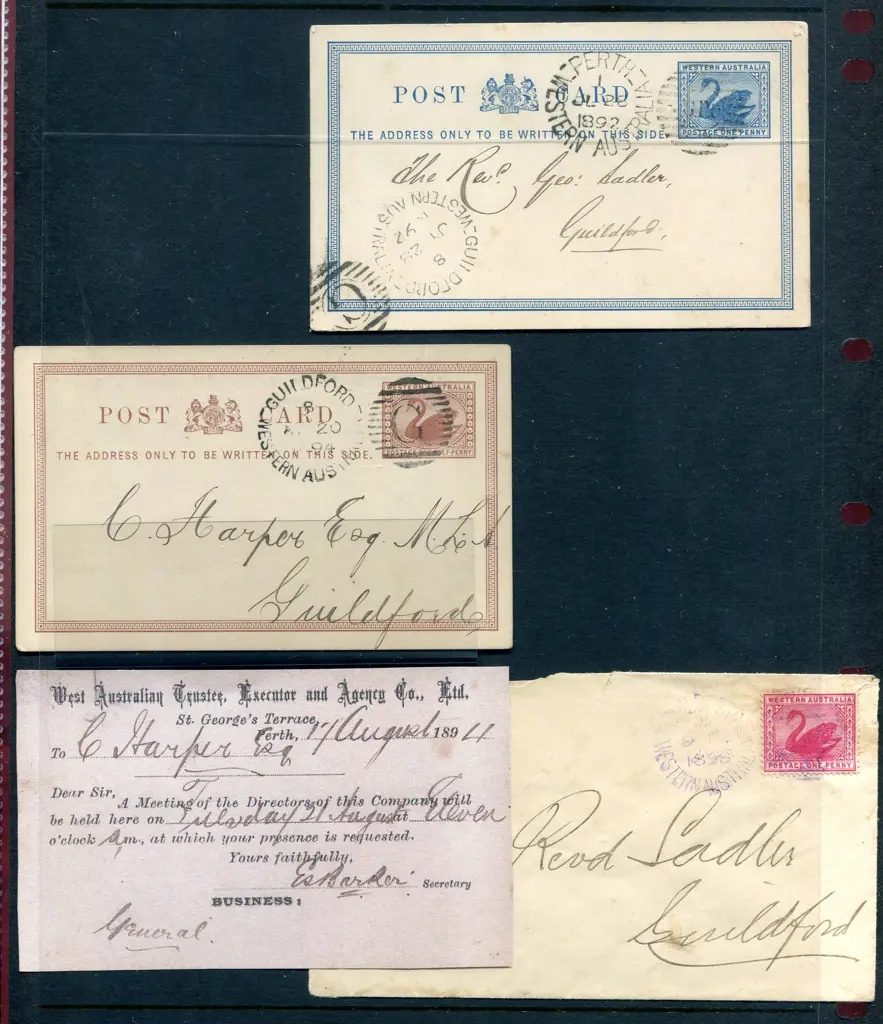 POST CARD
THE ADDRESS ONLY TO BE WRITTEN ON THIS SIDE.
WESTERN AUSTRALIA
POSTAGE ONE PENNY
PERTH
1
JL 28
1892
WESTERN AUSTRALIA
The Revd. Geo: Sadler,
Guildford.
GUILDFORD
8
92
WESTERN AUSTRALIA
POST CARD
THE ADDRESS ONLY TO BE WRITTEN ON THIS SIDE.
WESTERN AUSTRALIA
POSTAGE ONE HALF-PENNY
GUILDFORD
8
20
94
WESTERN AUSTRALIA
C. Harper Esq. M.L.A
Guildford
West Australian Trustee, Executor and Agency Co., Ltd.
St. George's Terrace,
Perth, 17 August 1894
To C Harper Esq
Dear Sir,
A Meeting of the Directors of this Company will
be held here on Tuesday 21 August at Eleven
o'clock a.m., at which your presence is requested.
Yours faithfully,
ES Barker Secretary
BUSINESS:
General.
WESTERN AUSTRALIA
POSTAGE ONE PENNY
1898
WESTERN AUSTRALIA
Revd Sadler
Guildford